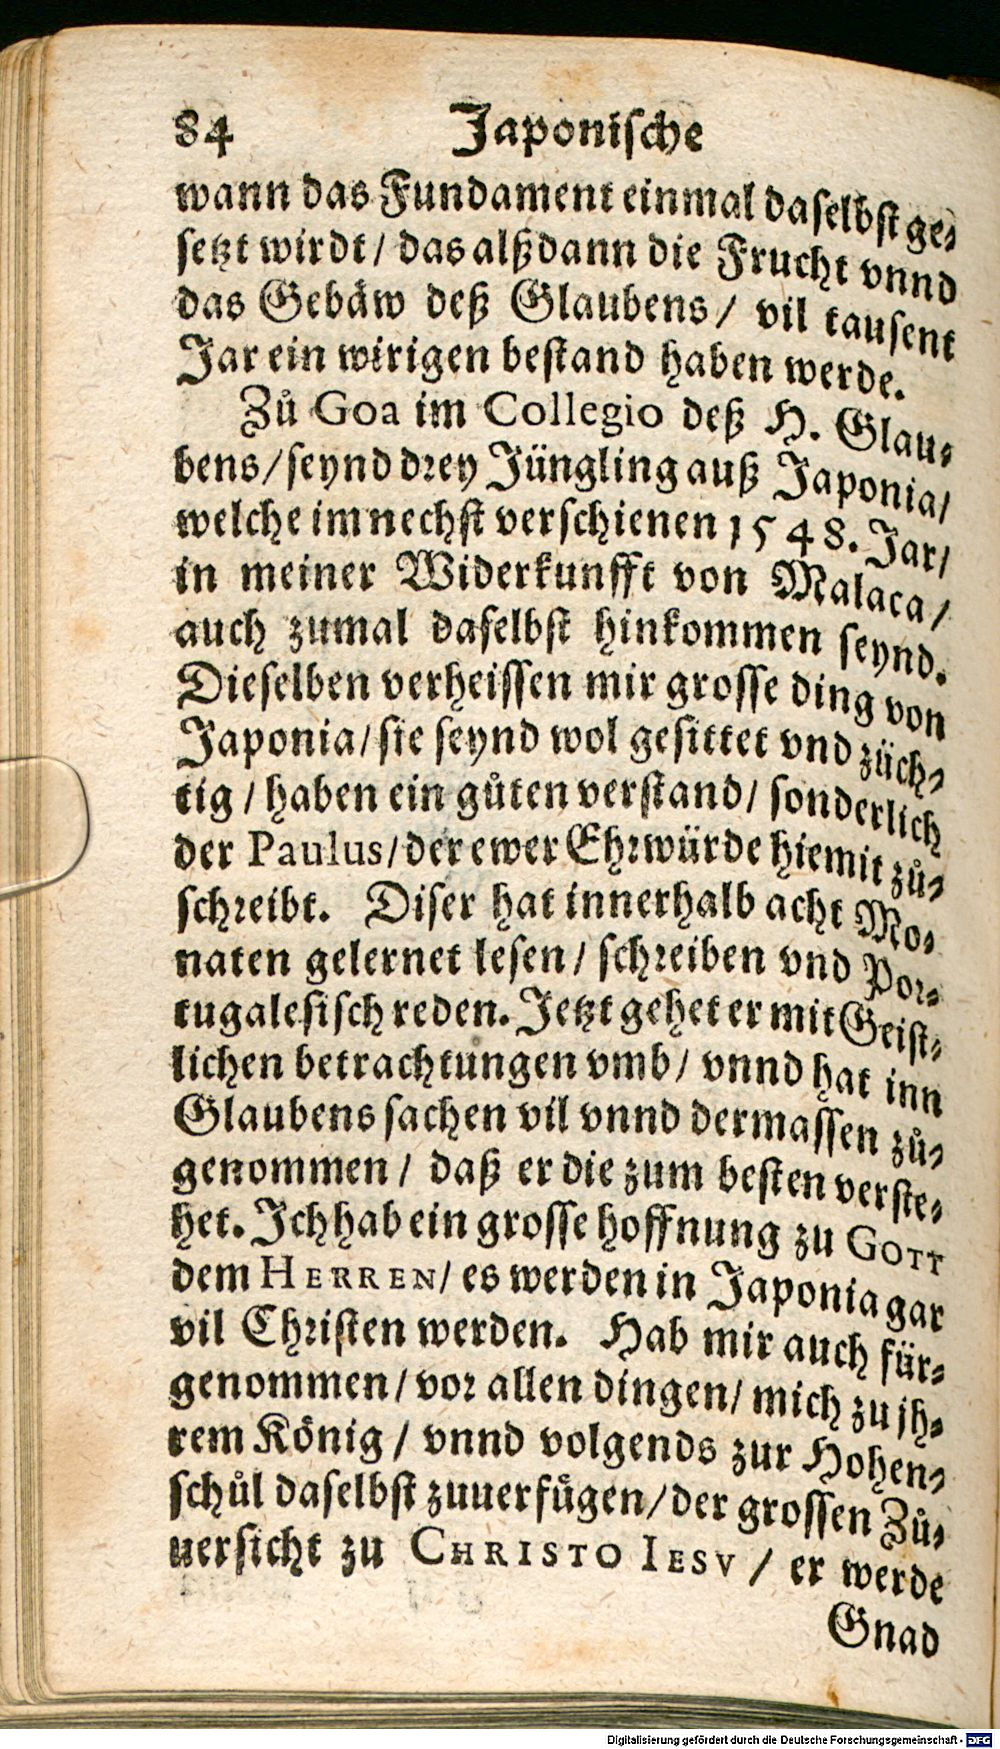 84 Japonische
wann das Fundament einmal daselbst ge-
setzt wirdt / das alßdann die Frucht vnnd
das Gebäw deß Glaubens / vil tausent
Jar ein wirigen bestand haben werde.
Zů Goa im Collegio deß H. Glau-
bens / seynd drey Jüngling auß Japonia /
welche im nechst verschienen 1548. Jar /
in meiner Widerkunfft von Malaca /
auch zumal daselbst hinkommen seynd.
Dieselben verheissen mir grosse ding von
Japonia / sie seynd wol gesittet vnd züch-
tig / haben ein gůten verstand / sonderlich
der Paulus / der ewer Ehrwürde hiemit zů-
schreibt. Diser hat innerhalb acht Mo-
naten gelernet lesen / schreiben vnd Por-
tugalesisch reden. Jetzt gehet er mit Geist-
lichen betrachtungen vmb / vnnd hat inn
Glaubens sachen vil vnnd dermassen zů-
genommen / daß er die zum besten verste-
het. Ich hab ein grosse hoffnung zu GOTT
dem HERREN / es werden in Japonia gar
vil Christen werden. Hab mir auch für-
genommen / vor allen dingen / mich zu jh-
rem König / vnnd volgends zur Hohen-
schůl daselbst zuuerfůgen / der grossen Zů-
uersicht zu CHRISTO IESV / er werde
Gnad
Digitalisierung gefördert durch die Deutsche Forschungsgemeinschaft - DFG